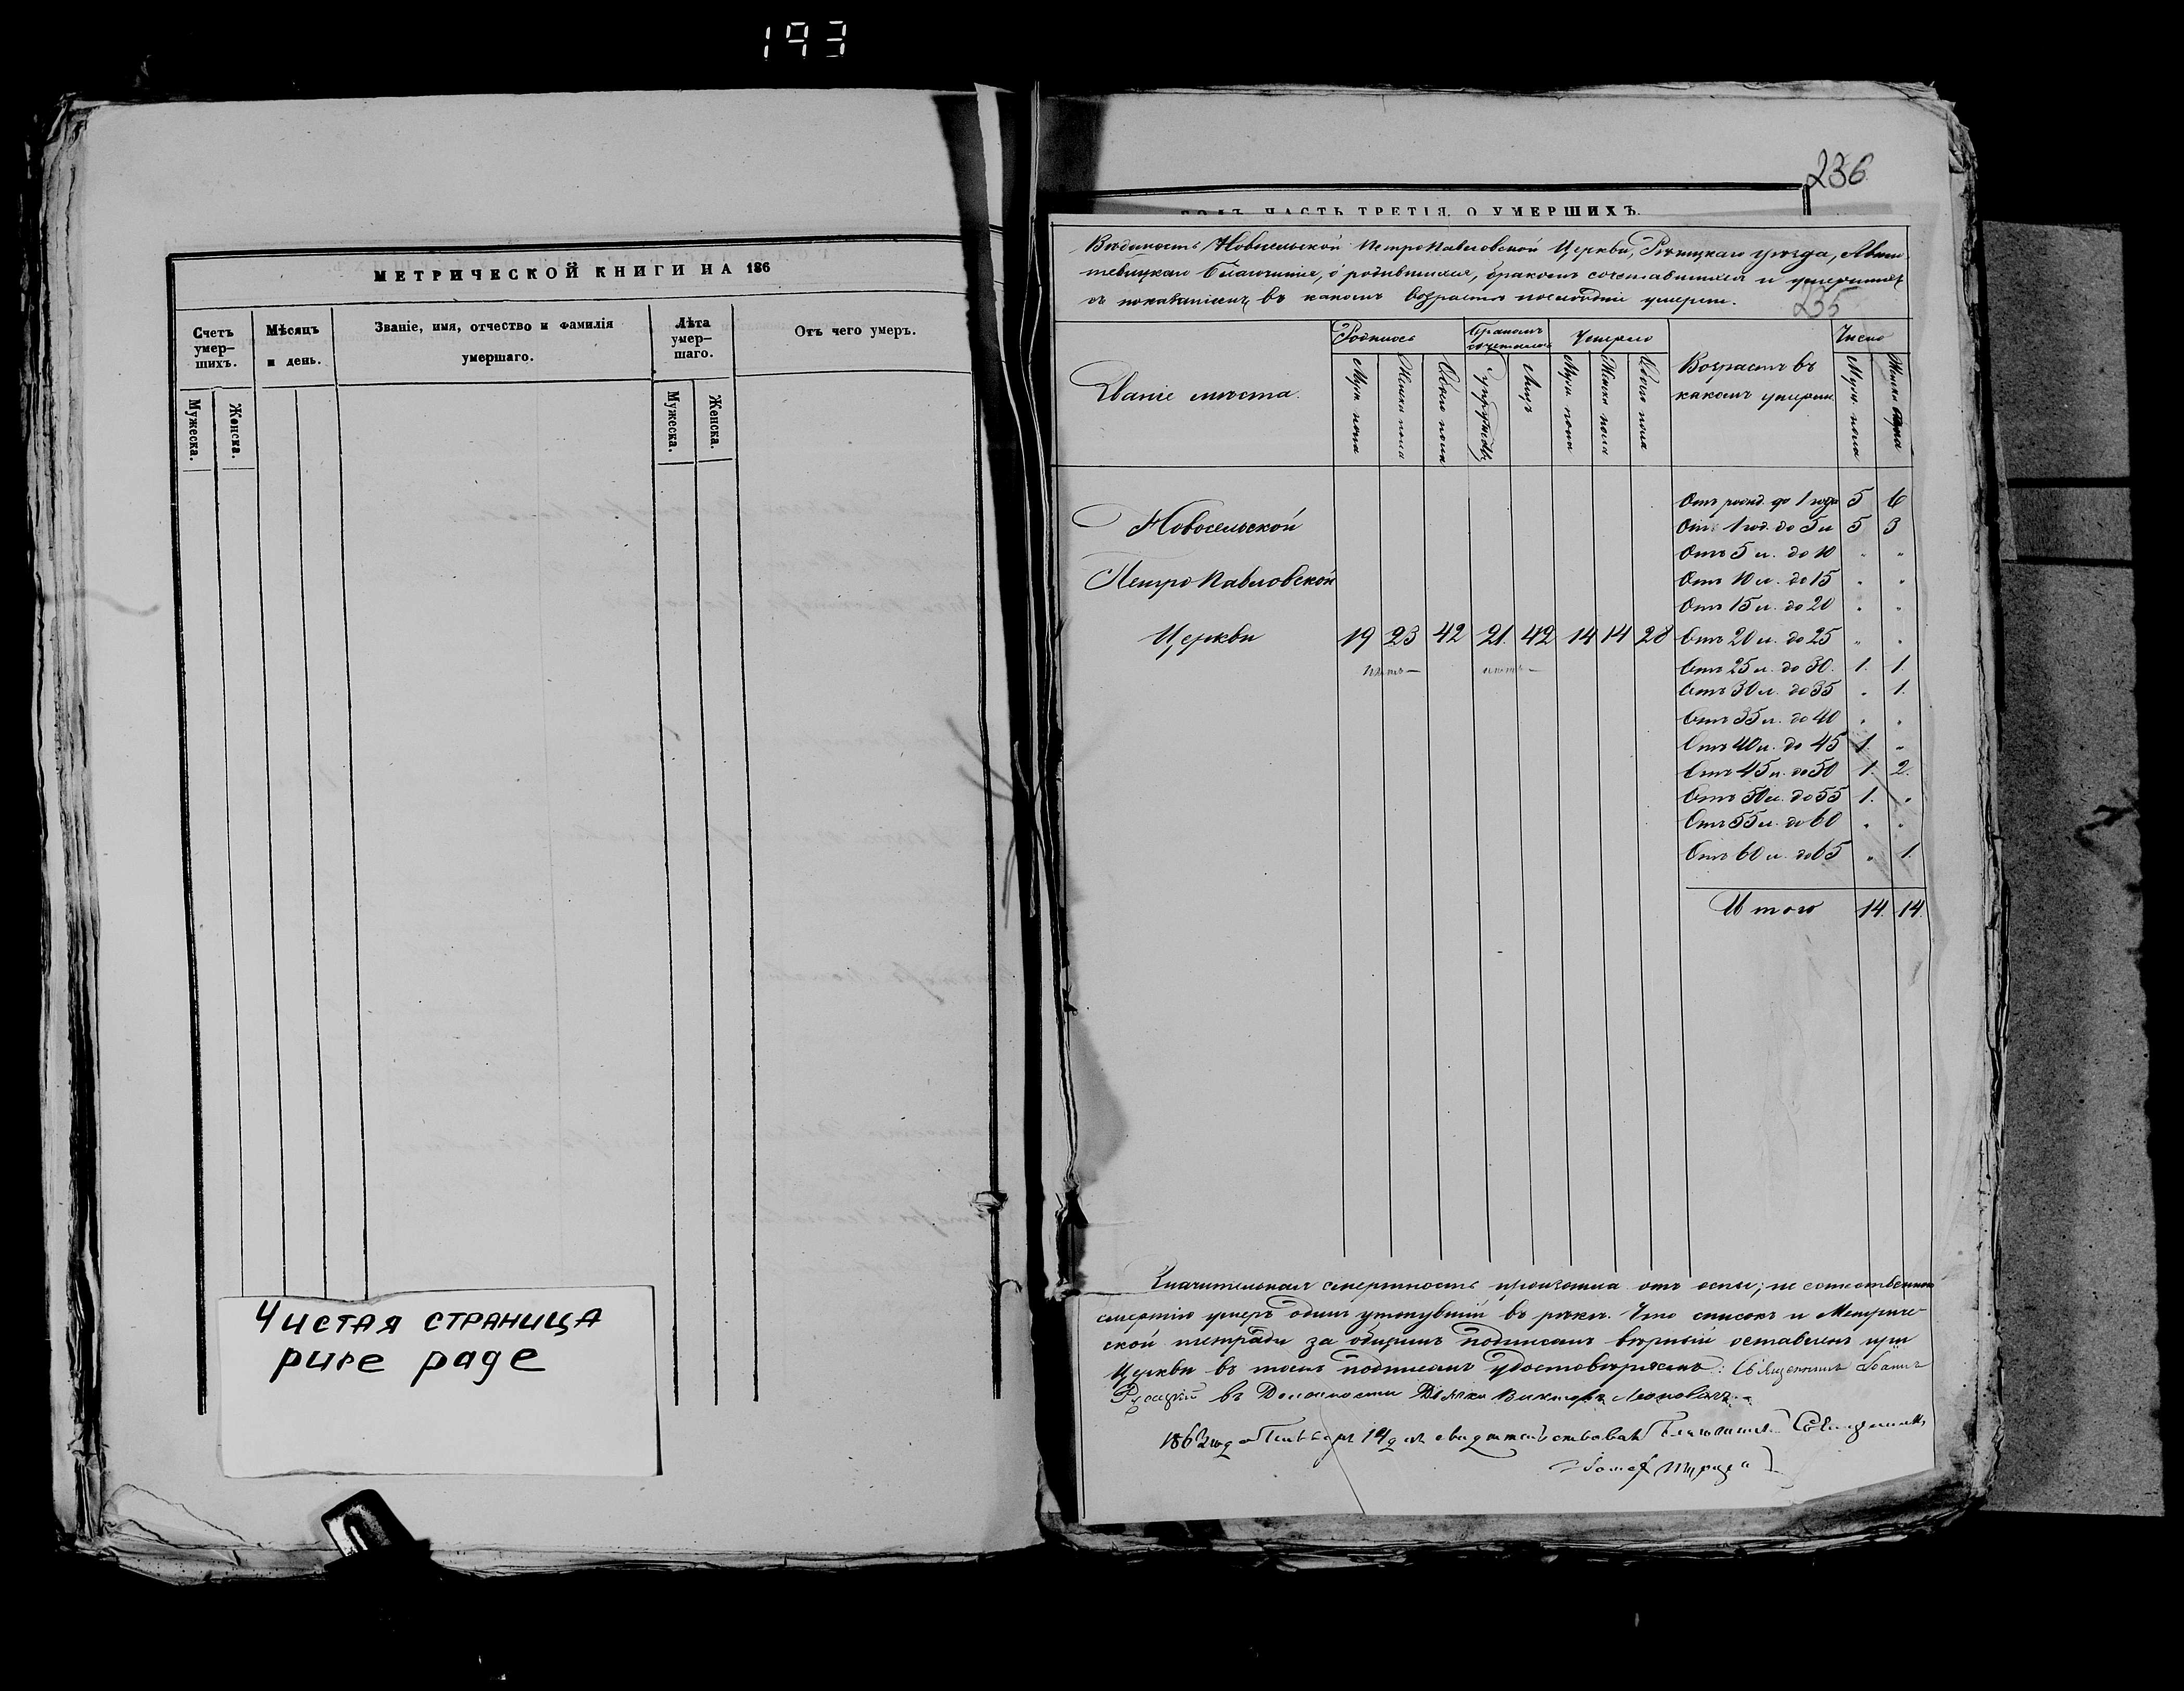 193
МЕТРИЧЕСКОЙ КНИГИ НА 186
Счетъ умер-шихъ.
Мѣсяцъ и день.
Званіе, имя, отчество и фамилія умершаго.
Лѣта умер-шаго.
Отъ чего умеръ.
Мужеска.
Женска.
Мужеска.
Женска.
Чистая страница
pure page
236
ГОДЪ ЧАСТЬ ТРЕТІЯ, О УМЕРШИХЪ.
Вѣдомость Новосельской Петропавловской Церкви, Рѣчицкаго уѣзда,
Благочинія, о родившихся, бракомъ сочетавшихся и умершихъ
съ показаніемъ, въ какомъ возрастѣ послѣдніе умерли.
235
Званіе мѣста.
Родилось
Бракомъ сочеталось
Умерло
Возрастъ въ какомъ умерли
Число
Муж. пола
Женск. пола
Обоего пола
Супружествъ
Лицъ
Муж. пола
Женск. пола
Обоего пола
Муж. пола
Женск. пола
Отъ рожд. до 1 года 5 6
Новосельской
Отъ 1 год. до 5 л 5 3
Отъ 5 л. до 10 " "
Петропавловской
Отъ 10 л. до 15 " "
Отъ 15 л. до 20 " "
Церкви 19 23 42 21. 42 14 14 28 Отъ 20 л. до 25 " "
Отъ 25 л. до 30. 1. 1.
Отъ 30 л. до 35 " 1.
Отъ 35 л. до 40 " "
Отъ 40 л. до 45 1. "
Отъ 45 л. до 50 1. 2.
Отъ 50 л. до 55 1. "
Отъ 55 л. до 60 " "
Отъ 60 л. до 65 " 1.
Итого 14. 14.
Значительная смертность произошла отъ оспы; не естественною
смертію умеръ одинъ утонувшій въ рѣкѣ. Что списокъ и Метриче-
ской тетради за общимъ подписомъ вѣрный оставленъ при
Церкви въ томъ подписомъ удостовѣряемъ: Священникъ Іоаннъ
въ Должности Дьячка Викторъ
186 года Генваря 19 дня свидѣтельствовалъ Благочинный Священникъ